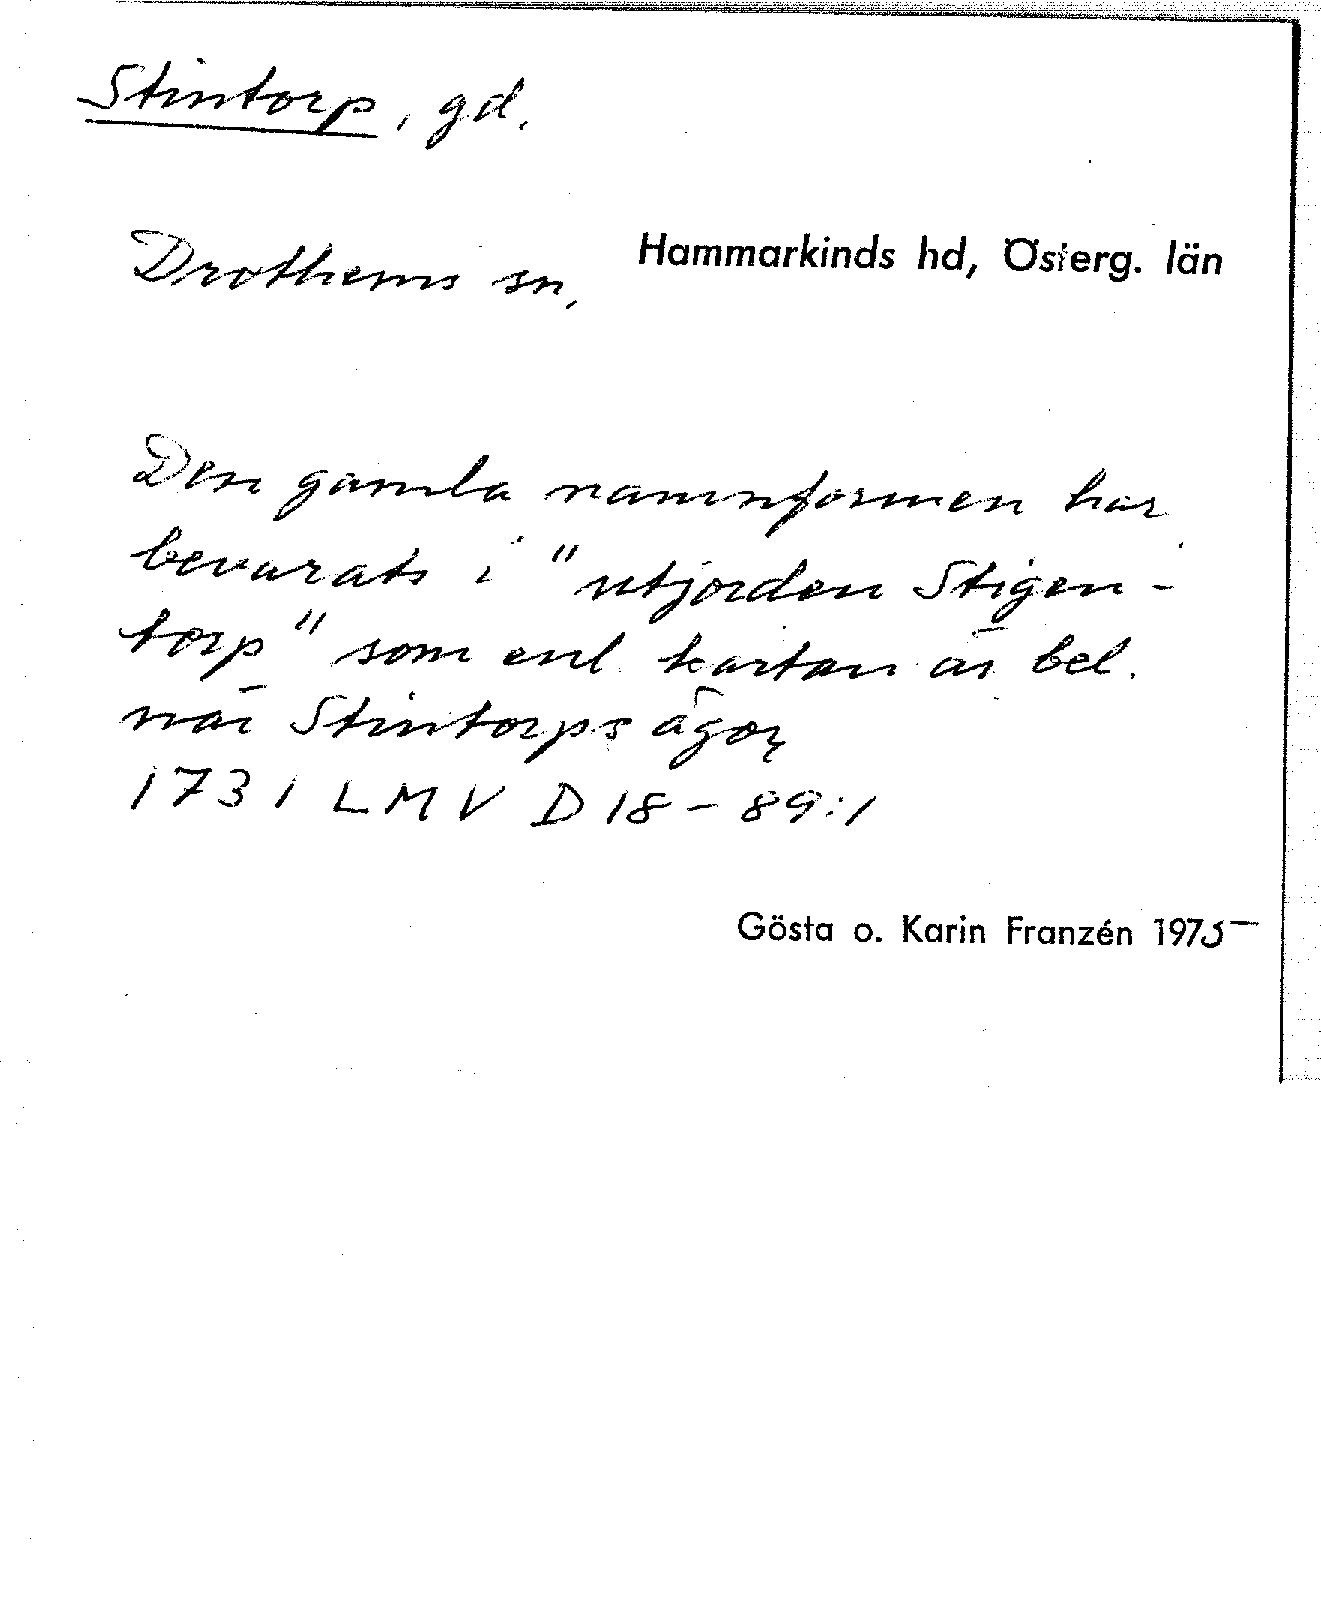 Stintorp, gd.
Drothems sn, Hammarkinds hd, Österg. län
Den gamla namnformen har
bevarats i "utjorden Stigen-
torp" som enl. kartan är bel.
när Stintorps ägor,
1731 LMV D 18-89:1
Gösta o. Karin Franzén 1975